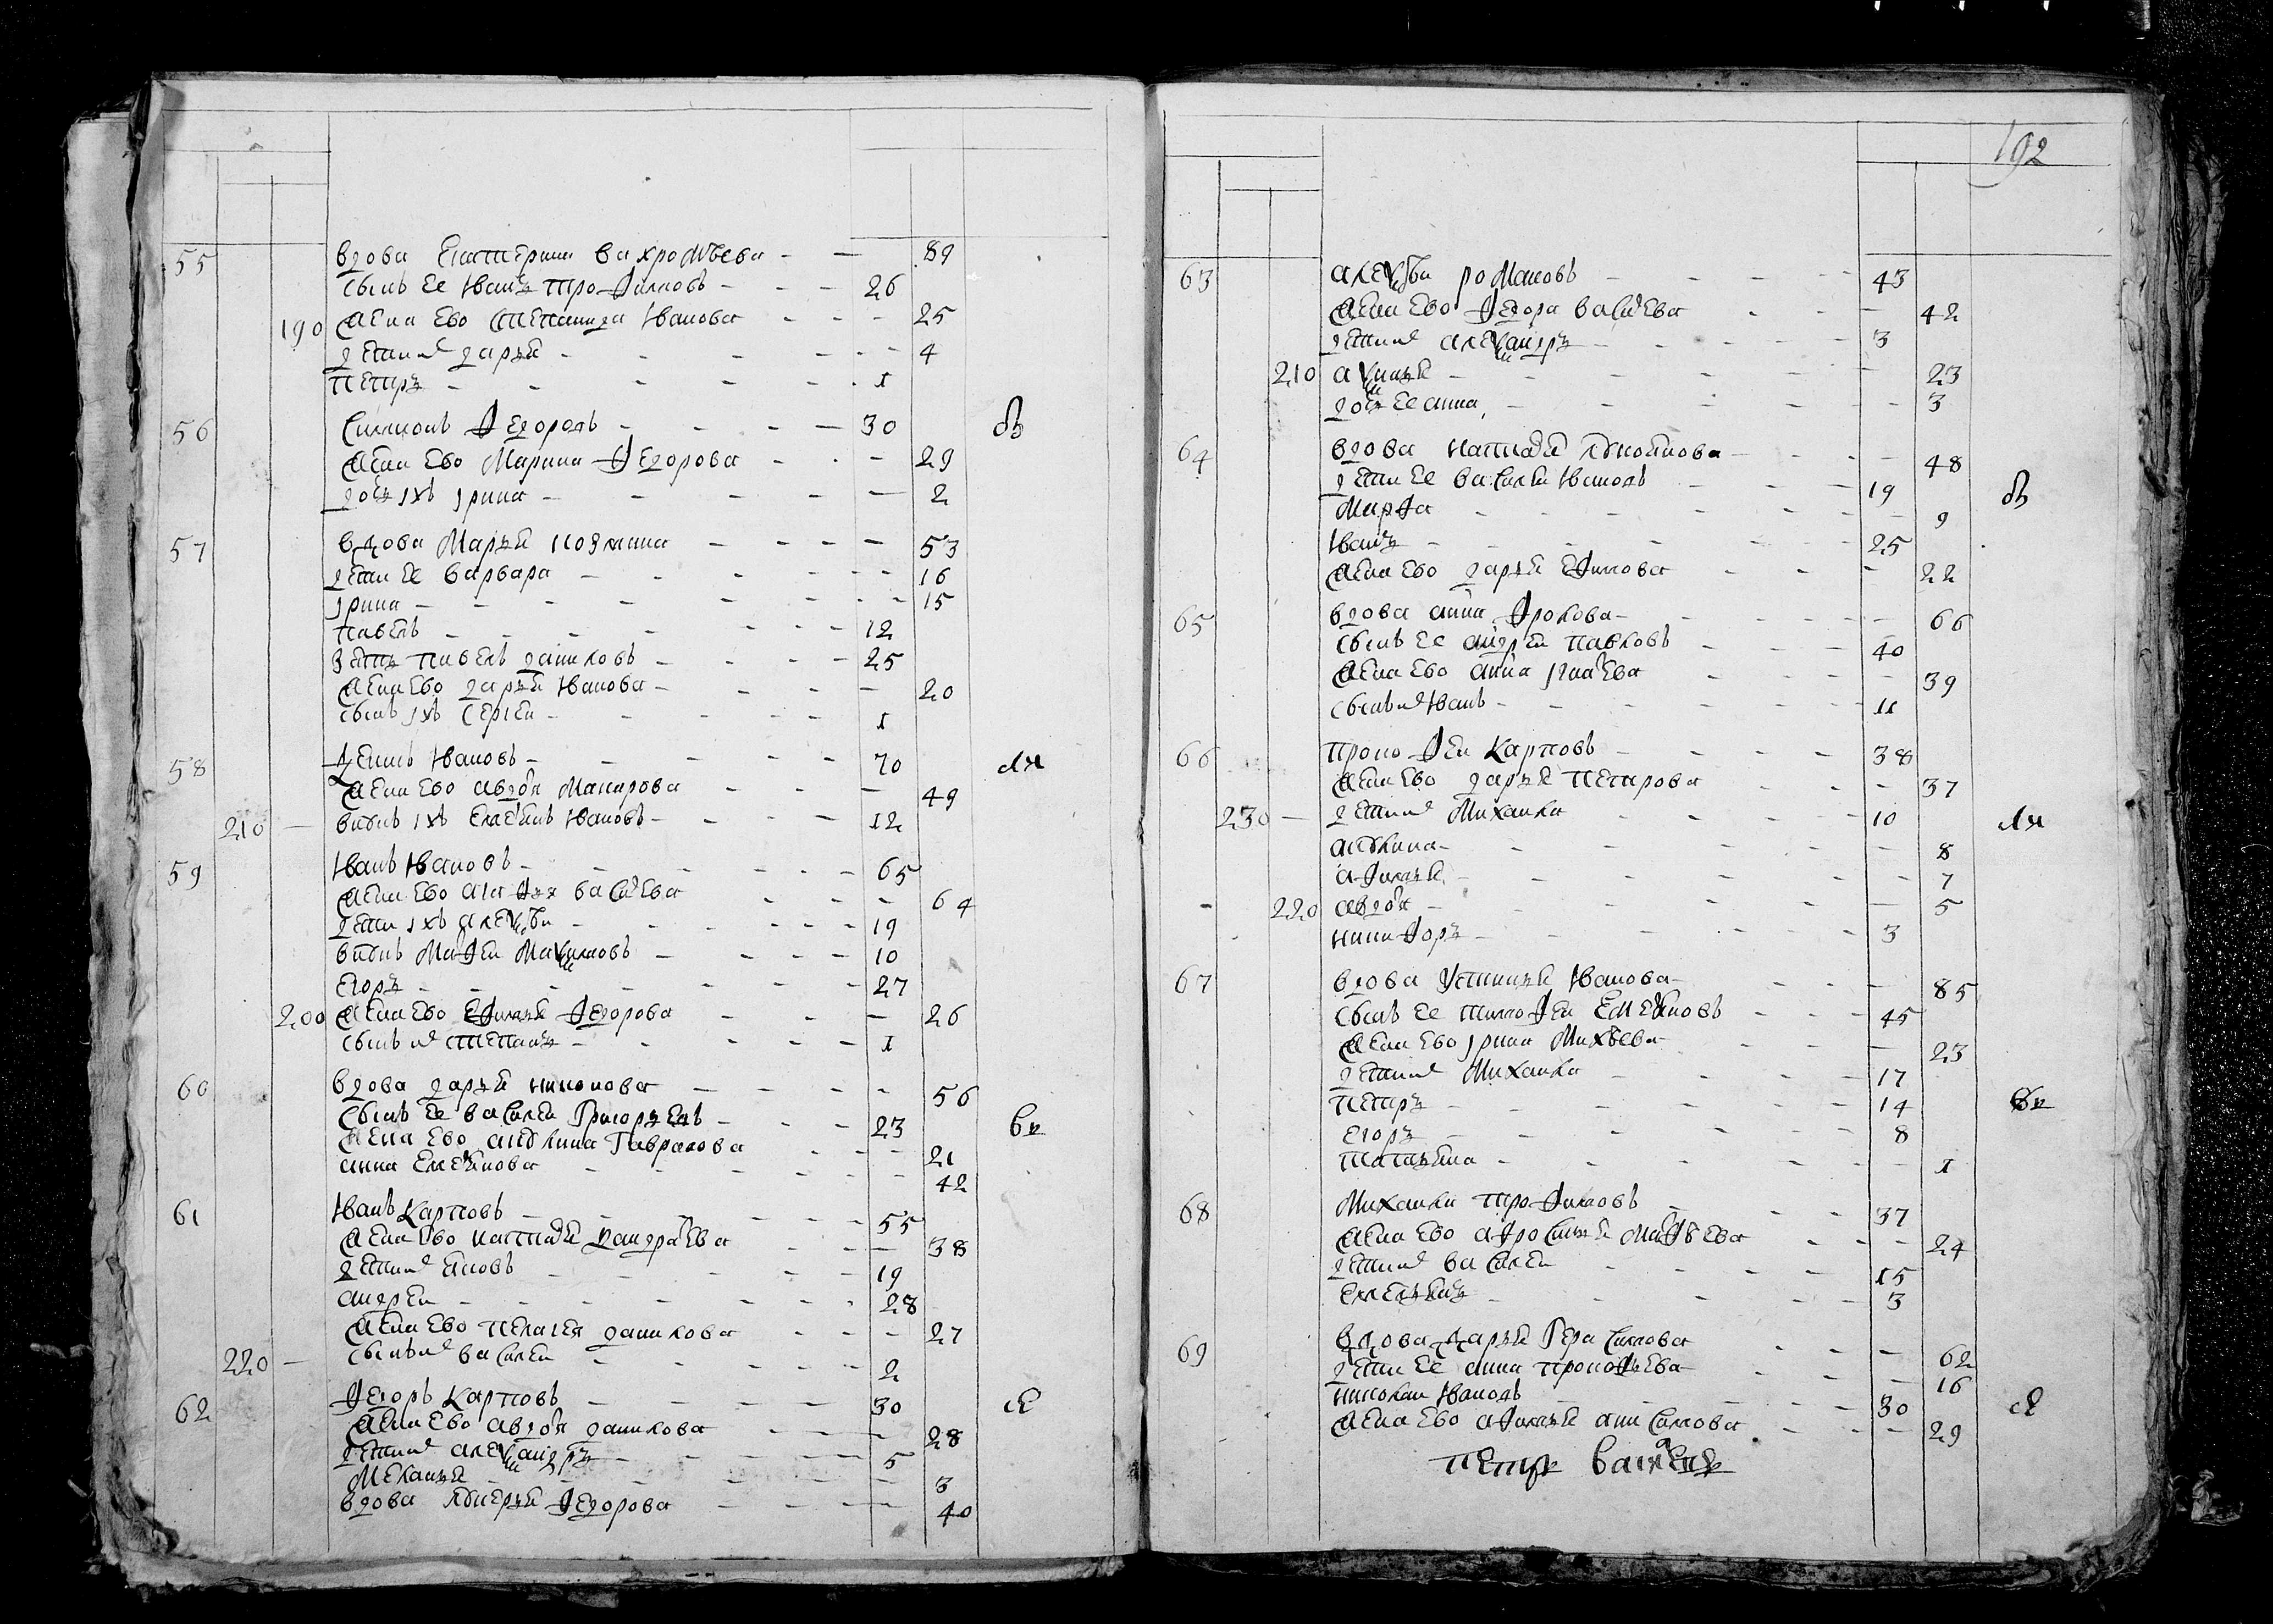 192
55 вдова Екатерина Вахромѣева - - 89
сынъ ее Иванъ Трофимовъ - - - 26
190 жена ево Степанида Иванова - - - 25
дети их Дарья - - - - - 4
Петръ - - - - - 1
56 Симионъ Федоровъ - - - - 30
жена ево Марина Федорова - - - 29
дочь ихъ Ирина - - - - - 2
57 вдова Марья Козмина - - - - 53
дети ее Варвара - - - - - 16
Ирина - - - - - - 15
Павелъ - - - - - 12
зять Павелъ Даниловъ - - - - 25
жена ево Дарья Иванова - - - - 20
сынъ ихъ Сергеи - - - - - 1
58 Денис Ивановъ - - - - - 70
жена ево Авдотя Макарова - - - 49
210 - внукъ ихъ Иванов - - - 12
59 Иванъ Ивановъ - - - - - 65
жена ево Василева - - - 64
дети ихъ Алексѣи - - - - - 19
внукъ Мафеи Максимовъ - - - - 10
Егоръ - - - - - - 27
200 жена ево Федорова - - - 26
сынъ их Степанъ - - - - - 1
60 вдова Дарья Никонова - - - 56
сынъ ее Василеи Григорьевъ - - - 23
жена ево Акулина Гаврилова - - - 21
Анна - - - - 42
61 Иванъ Карповъ - - - - - 55
жена ево Наталья Кондратева - - - 38
дети их Яковъ - - - - - 19
Андреи - - - - - - 28
жена ево Пелагея Данилова - - - 27
220 - сынъ их Василеи - - - - - 2
62 Федоръ Карповъ - - - - 30
жена ево Авдотя Данилова - - - 28
дети их Александръ - - - - 5
Меланья - - - - - 3
вдова Федорова - - - 40
63 Алексѣи Романовъ - - - - 43
жена ево Федора Василева - - - 42
дети их Александръ - - - - 3
210 Аксинья - - - - - 23
дочь ее Анна - - - - - 3
64 вдова Наталья - - - 48
дети ее Василеи Ивановъ - - - 19
Марфа - - - - - 9
Иванъ - - - - - 25
жена ево Дарья Ефимова - - - 22
65 вдова Анна Фролова - - - - 66
сынъ ее Андреи Павловъ - - - 40
жена ево Анна Игнатева - - - 39
сынъ их Иванъ - - - - - 11
66 Прокофеи Карповъ - - - - 38
жена ево Дарья Петрова - - - 37
230 - дети их Михаила - - - - 10
Акулина - - - - - 8
Афимья - - - - - 7
220 Авдотя - - - - - 5
Никифоръ - - - - - 3
67 вдова Устинья Иванова - - - 85
сынъ ее Тимофеи - - - 45
жена ево Ирина Михѣева - - - 23
дети их Михаила - - - - 17
Петръ - - - - - 14
Егоръ - - - - - 8
Татьяна - - - - - 1
68 Михаила Трофимовъ - - - - 37
жена ево Афросинья Мафѣева - - - 24
дети их Василеи - - - - 15
- - - - 3
69 вдова Дарья Герасимова - - - 62
дети ее Анна Прокофьева - - - 16
Николаи Ивановъ - - - - 30
жена ево Афимья Анисимова - - - 29
Петръ